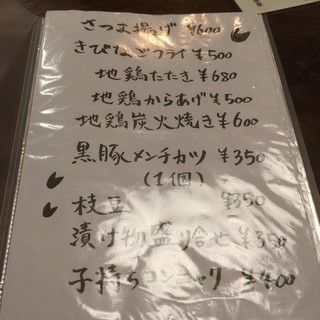 さつま揚げ ¥600
きびなごフライ ¥500
地鶏たたき ¥680
地鶏からあげ ¥500
地鶏炭火焼き ¥600
黒豚メンチカツ ¥350
(1個)
枝豆 ¥350
漬け物盛り合せ ¥350
子持ちコンニャク ¥400